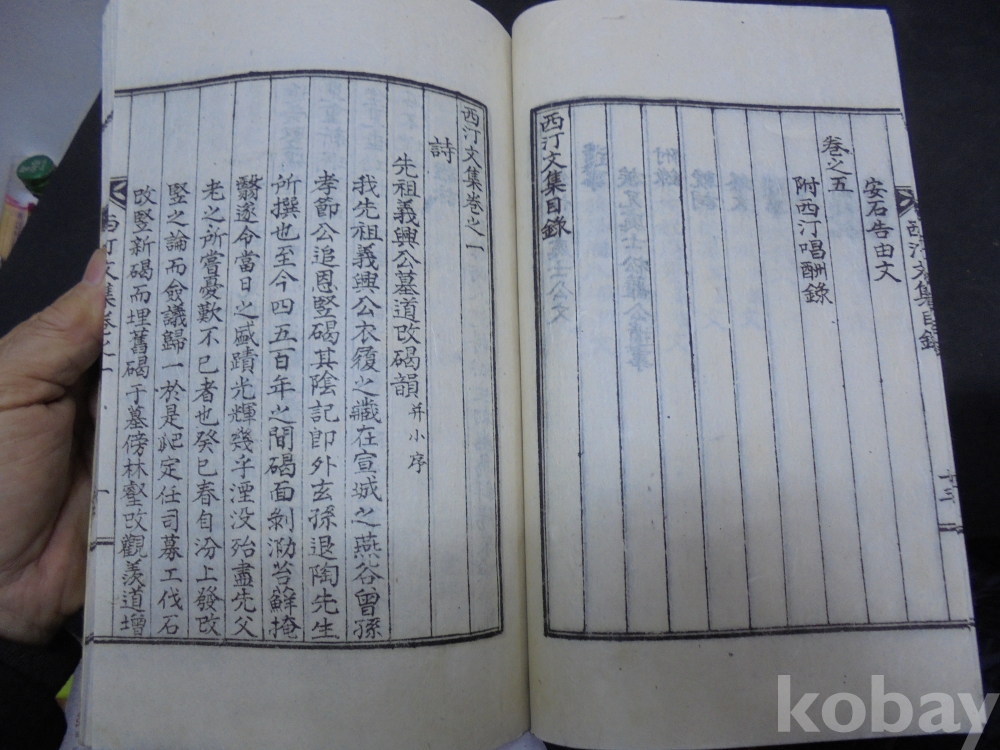 西汀文集目錄
安石告由文
卷之五
附西汀唱酬錄
西汀文集目錄
西汀文集卷之一
詩
先祖義興公墓道改碣韻 并小序
我先祖義興公衣履之藏在宣城之燕谷曾孫
孝節公追恩竪碣其陰記即外玄孫退陶先生
所撰也至今四五百年之間碣面剝泐苔蘚掩
翳遂令當日之盛蹟光輝幾乎湮没殆盡先父
老之所嘗憂歎不已者也癸巳春自汾上發改
竪之論而僉議歸一於是爬定任司募工伐石
改竪新碣而埋舊碣于墓傍林壑改觀羡道增
西汀文集卷之一
一
kobay